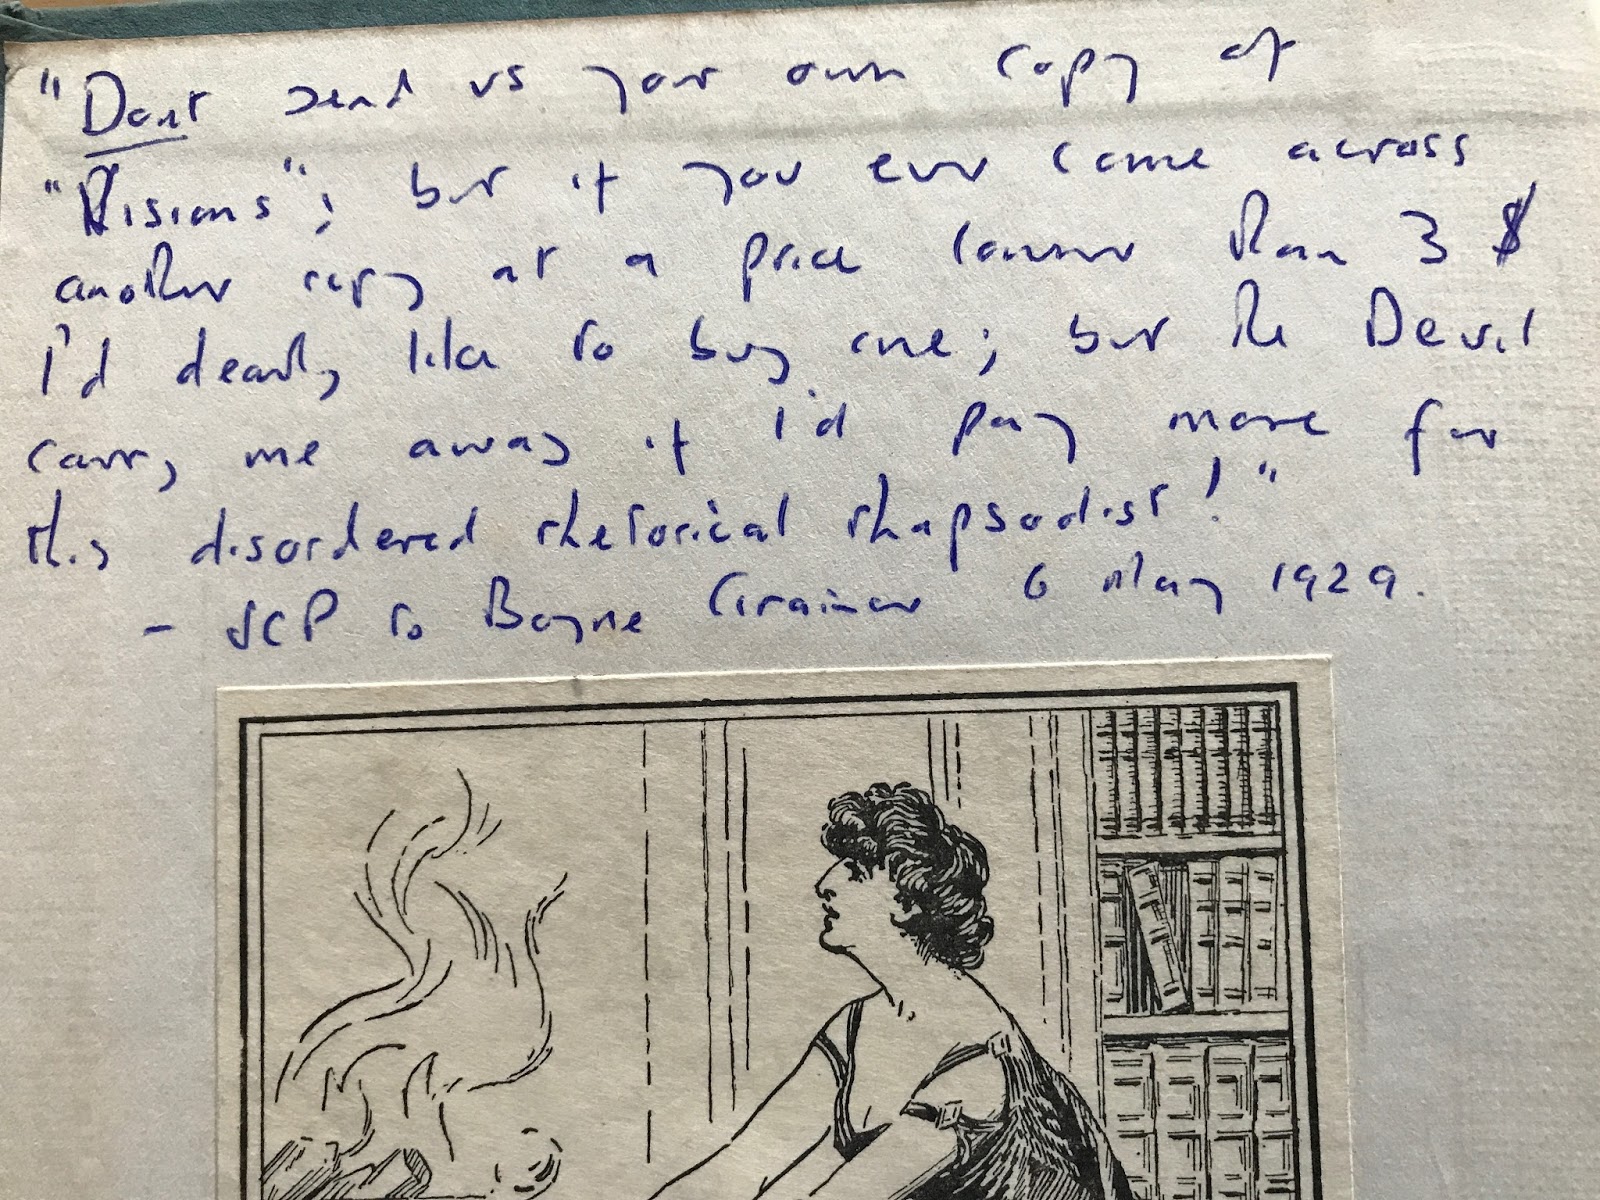 "Dont send us your own copy of
"Visions"; but if you ever come across
another copy at a price lower than 3 $
I'd dearly like to buy one; but the Devil
carry me away if I'd pay more for
this disordered rhetorical rhapsodist!"
- JCP to Boyne Grainer 6 May 1929.